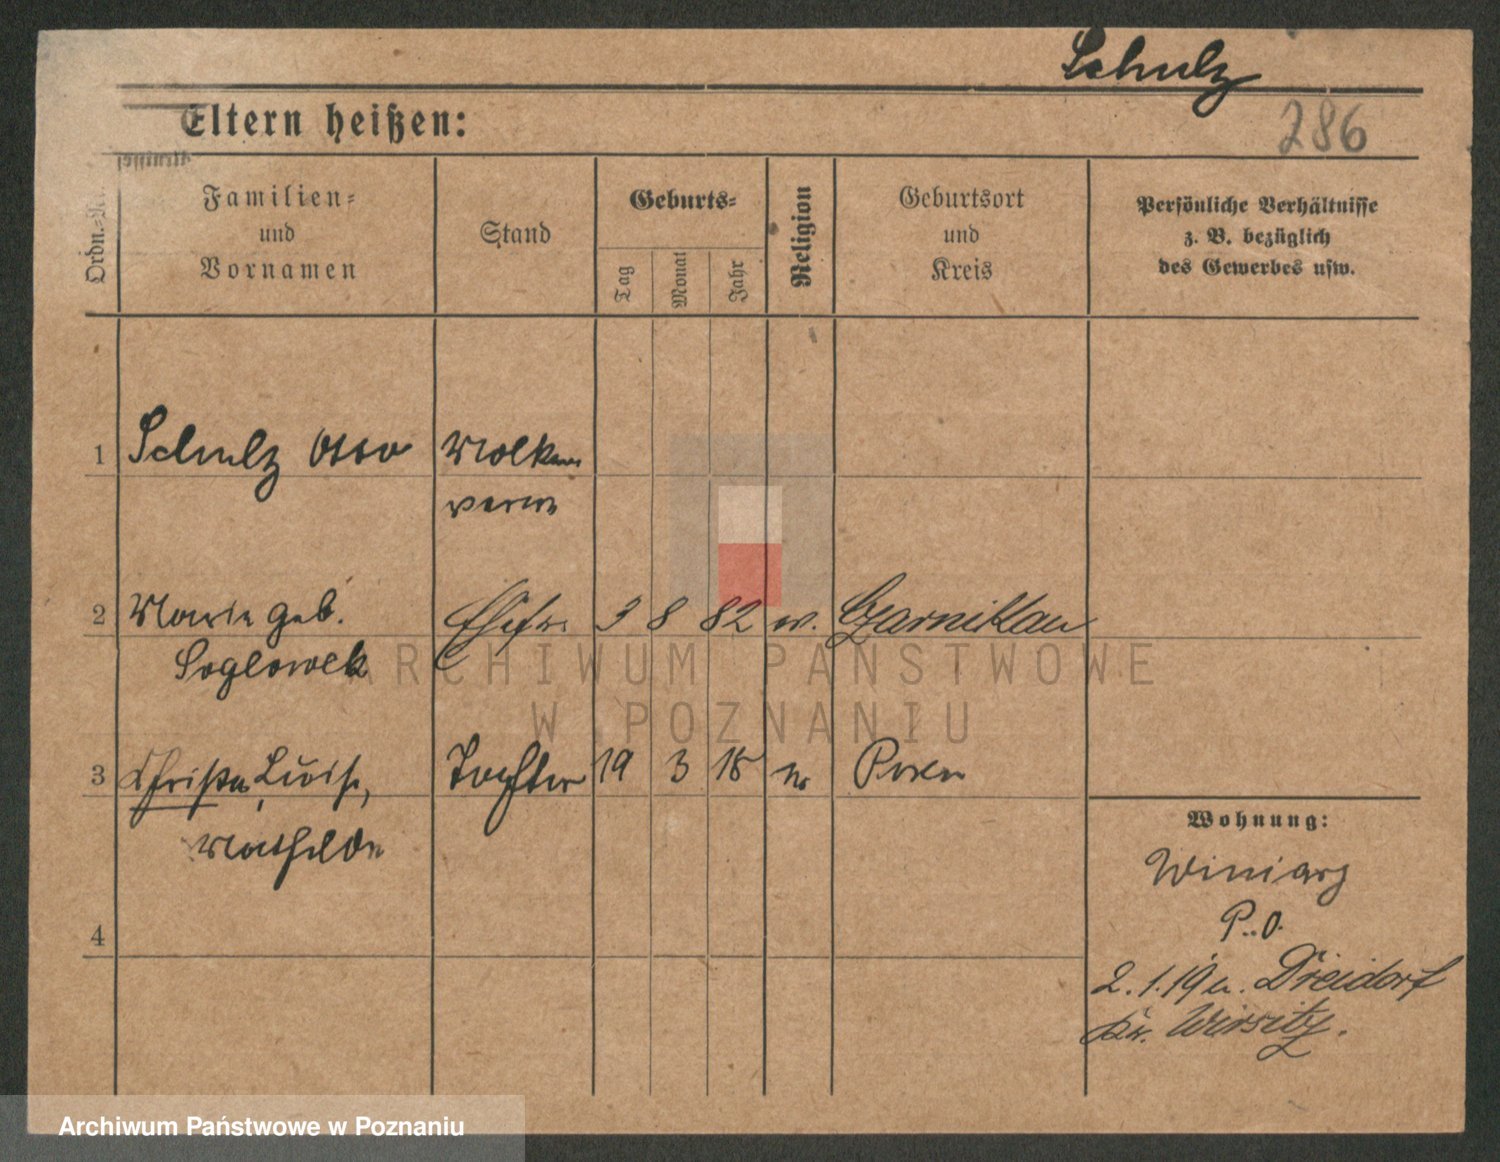 Schulz
286
Eltern heißen:
Ordn.-Nr.
Familien-
und
Vornamen
Stand
Geburts-
Tag
Monat
Jahr
Religion
Geburtsort
und
Kreis
Persönliche Verhältnisse
z. B. bezüglich
des Gewerbes usw.
1 Schulz Otto
2 Marie geb. Ehefr. 3 8 82 Czarnikau
Soglowek
3 Luise, Tochter 19 3 18 Posen
Mathilde
4
Wohnung:
Winiary
P. O.
2. 1. 19 n. Dreidorf
Kr. Wirsitz.
ARCHIWUM PAŃSTWOWE
W POZNANIU
Archiwum Państwowe w Poznaniu